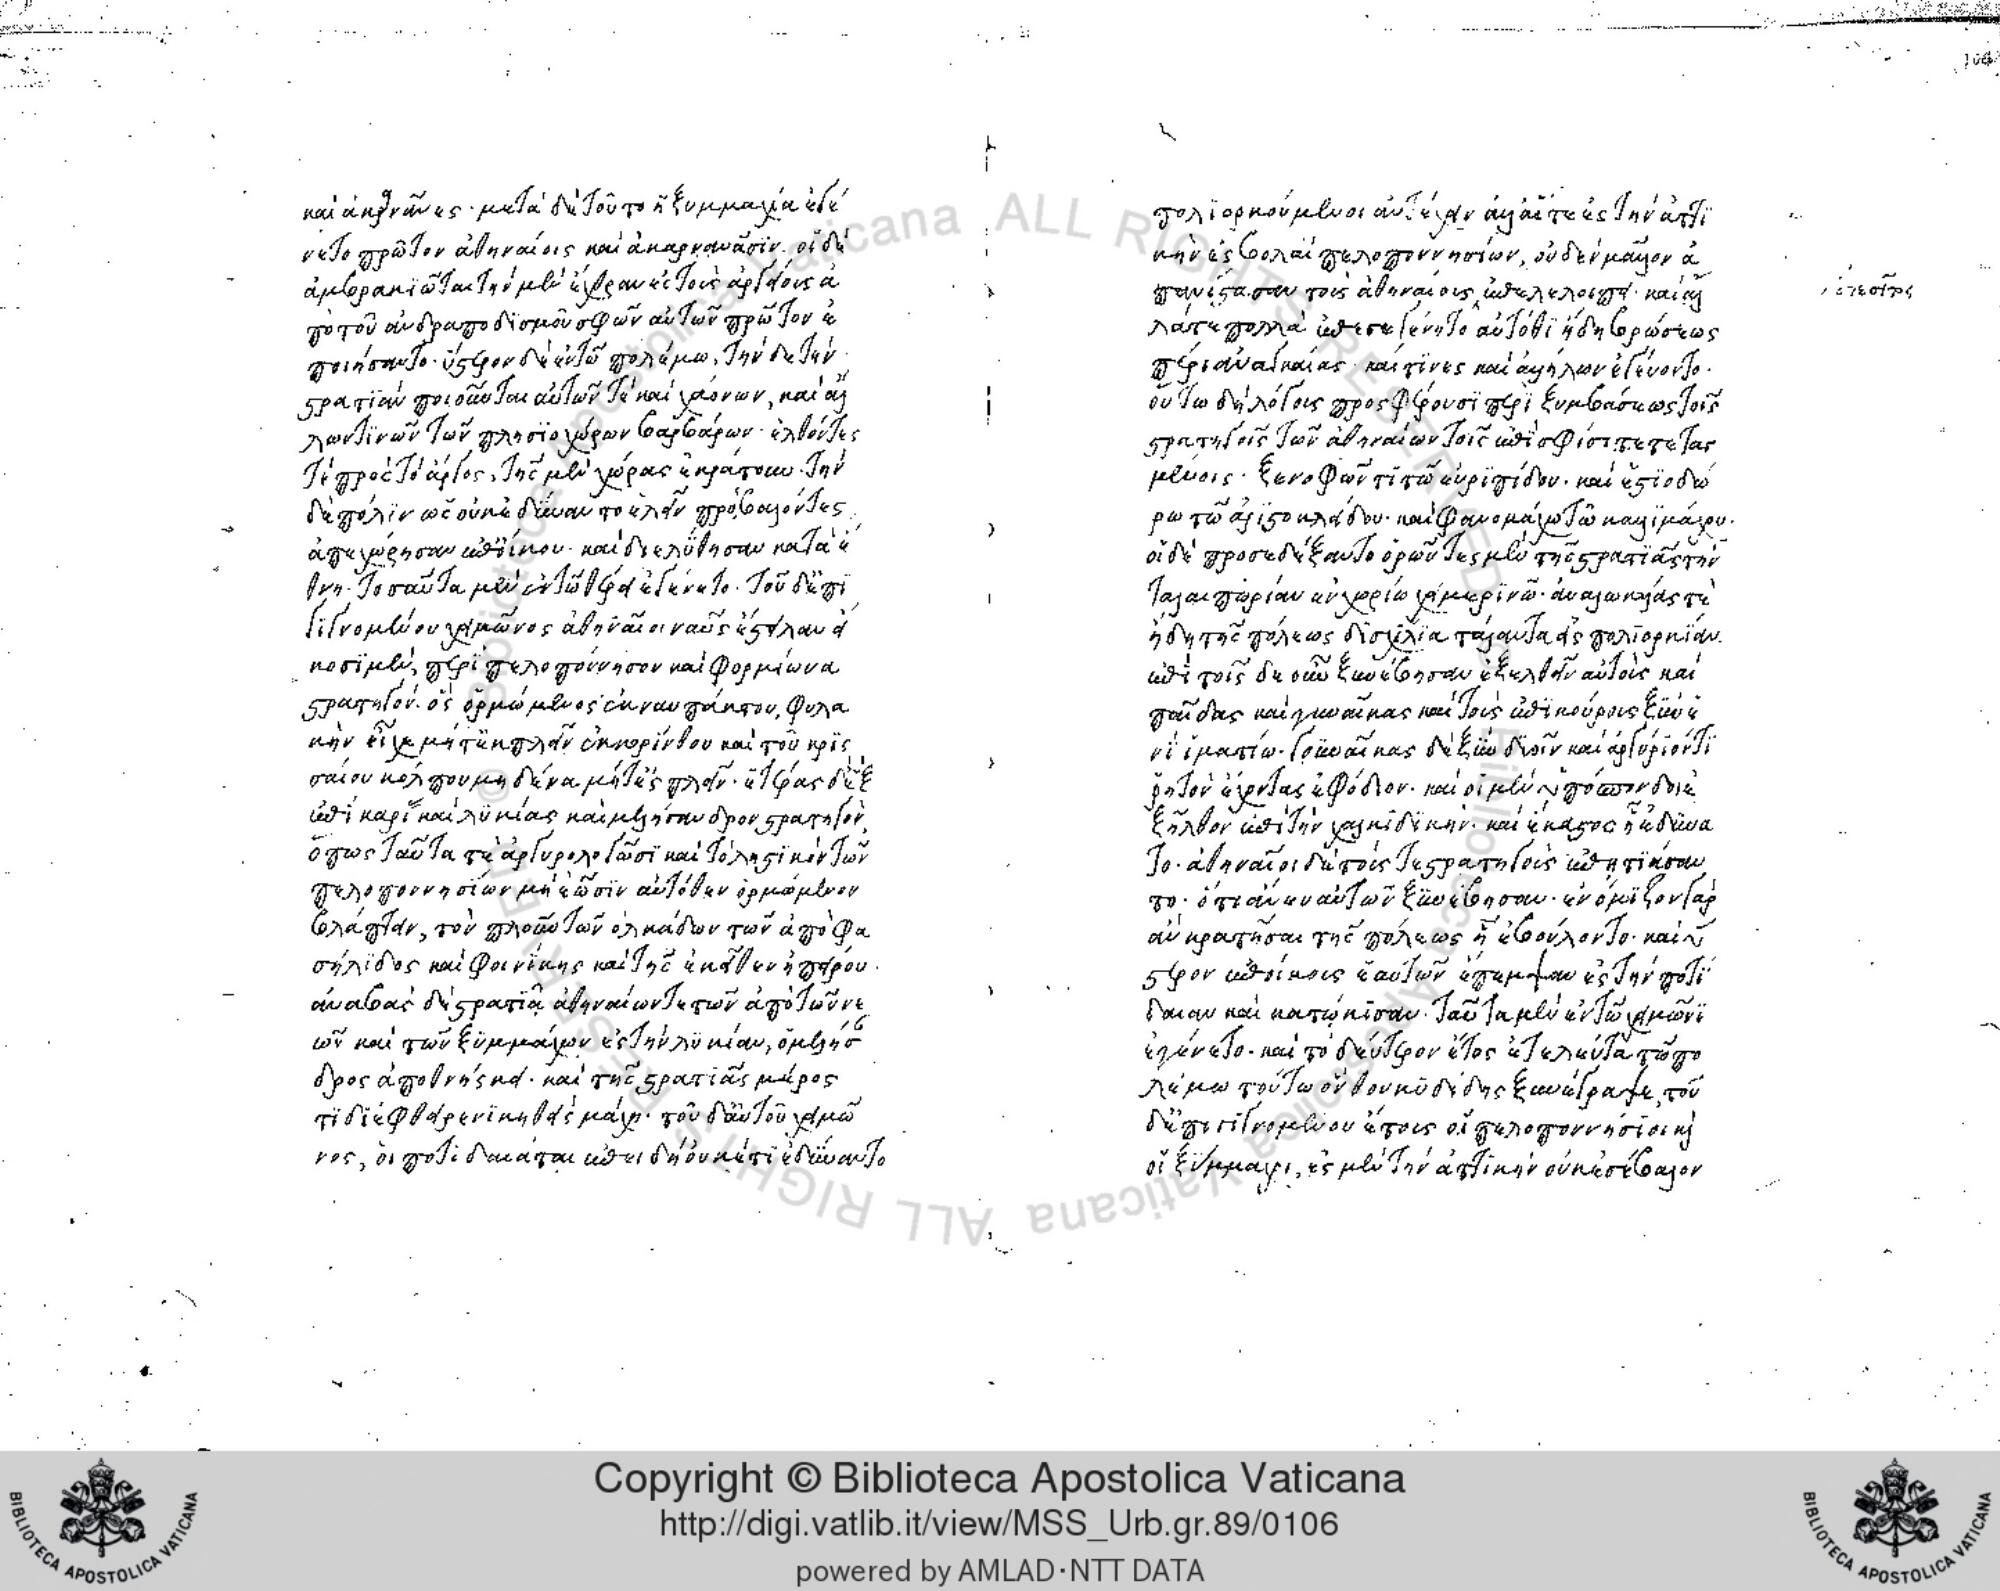 καὶ ἀκαρνᾶνες· μετὰ δὲ τοῦτο ἡ ξυμμαχία ἐγέ
νετο πρῶτον ἀθηναίοις καὶ ἀκαρνανᾶσϊν· οἱ δὲ
ἀμβρακϊῶται τὴν μὲν ἔχθραν ἐς τοὺς ἀργείους ἀ
πὸ τοῦ ἀνδραποδϊσμοῦ σφῶν αὐτῶν πρῶτον ἐ
ποιήσαντο· ὕστερον δὲ ἐν τῶ πολέμω, τήν δε τὴν
στρατϊὰν ποιοῦνται αὐτῶν τὲ καὶ χαόνων, καὶ ἄλ
λων τϊνῶν τῶν πλησϊοχώρων βαρβάρων· ἐλθόντες
τὲ πρὸς τὸ ἄργος, τῆς μὲν χώρας ἐκράτουν· τὴν
δὲ πόλϊν ὡς οὐκ ἐδύναντο ἑλεῖν προσβαλόντες
ἀπεχώρησαν ἐπ' οἴκου· καὶ διελύθησαν κατὰ ἔ
θνη· τοσαῦτα μὲν ἐν τῶ θέρει ἐγένετο· τοῦ δ' ἐπϊ
γϊγνομένου χειμῶνος ἀθηναῖοι ναῦς ἔστειλαν εἴ
κοσϊ μὲν, περὶ πελοπόννησον καὶ φορμίωνα
στρατηγόν· ὃς ὁρμώμενος ἐκ ναυπάκτου, φυλα
κὴν εἶχε μήτ' ἐκπλεῖν ἐκ κορίνθου καὶ τοῦ κρϊς
σαίου κόλπου μηδένα μήτ' ἐσπλεῖν· ἑτέρας δ' ἓξ
ἐπὶ καρίας καὶ λυκίας καὶ μελήσανδρον στρατηγὸν,
ὅπως ταῦτα τὲ ἀργυρολογῶσϊ καὶ τὸ ληστϊκὸν τῶν
πελοποννησίων μὴ ἐῶσϊν αὐτόθεν ὁρμώμενον
βλάπτειν, τὸν πλοῦν τῶν ὁλκάδων τῶν ἀπὸ φα
σήλϊδος καὶ φοινίκης καὶ τῆς ἐκεῖθεν ἠπείρου·
ἀναβὰς δὲ στρατϊᾶ ἀθηναίων τε τῶν ἀπὸ τῶν νε
ῶν καὶ τῶν ξυμμάχων ἐς τὴν λυκίαν, ὁ μελήσ
δρος ἀποθνήσκει· καὶ τῆς στρατϊᾶς μέρος
τϊ διέφθειρε νϊκηθεὶς μάχη· τοῦ δ' αὐτοῦ χειμῶ
νος, οἱ ποτϊδαιάται ἐπειδὴ οὐκέτϊ ἐδύναντο
πολϊορκούμενοι ἀντέχειν ἀλλ' αἵ τε ἐς τὴν ἀττϊ
κὴν ἐσβολαὶ πελοποννησίων, οὐδὲν μᾶλλον ἀ
πανίστασαν τοὺς ἀθηναίους, ἐπελελοίπει· καὶ ἄλ
λα τε πολλὰ ἐπεγεγένητο αὐτόθϊ ἤδη βρώσεως
πέρι ἀναγκαίας· καί τϊνες καὶ ἀλλήλων ἐγέγευντο·
οὕτω δὴ λόγους προσφέρουσϊ περὶ ξυμβάσεως τοῖς
στρατηγοῖς τῶν ἀθηναίων τοῖς ἐπὶ σφίσι τεταγ
μένοις· ξενοφῶντϊ τῶ εὐρϊπίδου· καὶ ἑστϊοδώ
ρω τῶ ἀρϊστοκλείδου· καὶ φανομάχω τῶ καλλϊμάχου·
οἱ δὲ προσεδέξαντο ὁρῶντες μὲν τῆς στρατϊᾶς τὴν
ταλαιπωρίαν ἐν χωρίω χειμερϊνῶ· ἀναλωκυίας τὲ
ἤδη τῆς πόλεως δϊσχίλϊα τάλαντα ἐς πολϊορκϊαν·
ἐπὶ τοῖς δε οὖν ξυνέβησαν ἐξελθεῖν αὐτοὺς καὶ
παῖδας καὶ γυναῖκας καὶ τοὺς ἐπϊκούρους ξὺν ἑ
νὶ ἱματίω· γυναῖκας δὲ ξὺν δυοῖν καὶ ἀργύρϊόν τϊ
ῥητὸν ἔχοντας ἐφόδϊον· καὶ οἱ μὲν ὑπόσπονδοι ἐ
ξῆλθον ἐπὶ τὴν χαλκϊδϊκήν· καὶ ἕκαστος ἧ ἐδύνα
το· ἀθηναῖοι δὲ τούς τε στρατηγοὺς ἐπητϊάσαν
το· ὅτι ἄνευ αὐτῶν ξυνέβησαν· ἐνόμϊζον γὰρ
ἂν κρατῆσαι τῆς πόλεως ἧ ἐβούλοντο· καὶ ὕ
στερον ἐποίκους ἑαυτῶν ἔπεμψαν ἐς τὴν ποτϊ
δαιαν καὶ κατώκισαν· ταῦτα μὲν ἐν τῶ χειμῶνϊ
ἐγένετο· καὶ τὸ δεύτερον ἔτος ἐτελεύτα τῶ πο
λέμω τούτω ὃν θουκυδίδης ξυνέγραψε, τοῦ
δ' ἐπιγϊγνομένου ἔτους οἱ πελοποννήσϊοι καὶ
οἱ ξύμμαχοι, ἐς μὲν τὴν ἀττϊκὴν οὐκ ἐσέβαλον
Copyright © Biblioteca Apostolica Vaticana
http://digi.vatlib.it/view/MSS_Urb.gr.89/0106
powered by AMLAD·NTT DATA